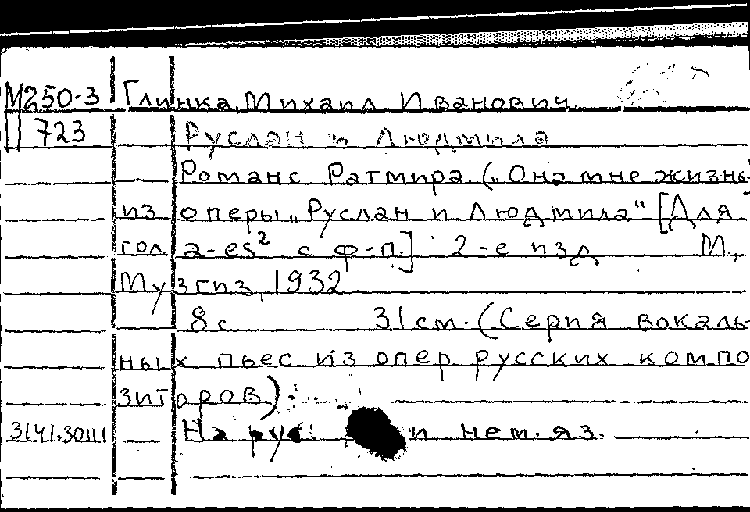 М250-3 Глинка, Михаил Иванович
723 Руслан и Людмила
Романс Ратмира. („Она мне жизнь
из оперы „Руслан и Людмила" [Для
гол. a-es² с ф-п.] 2-е изд. М.,
Музгиз, 1932
8 с 31 см. (Серия вокаль
ных пьес из опер русских компо
зиторов)
На рус. и нем. яз.